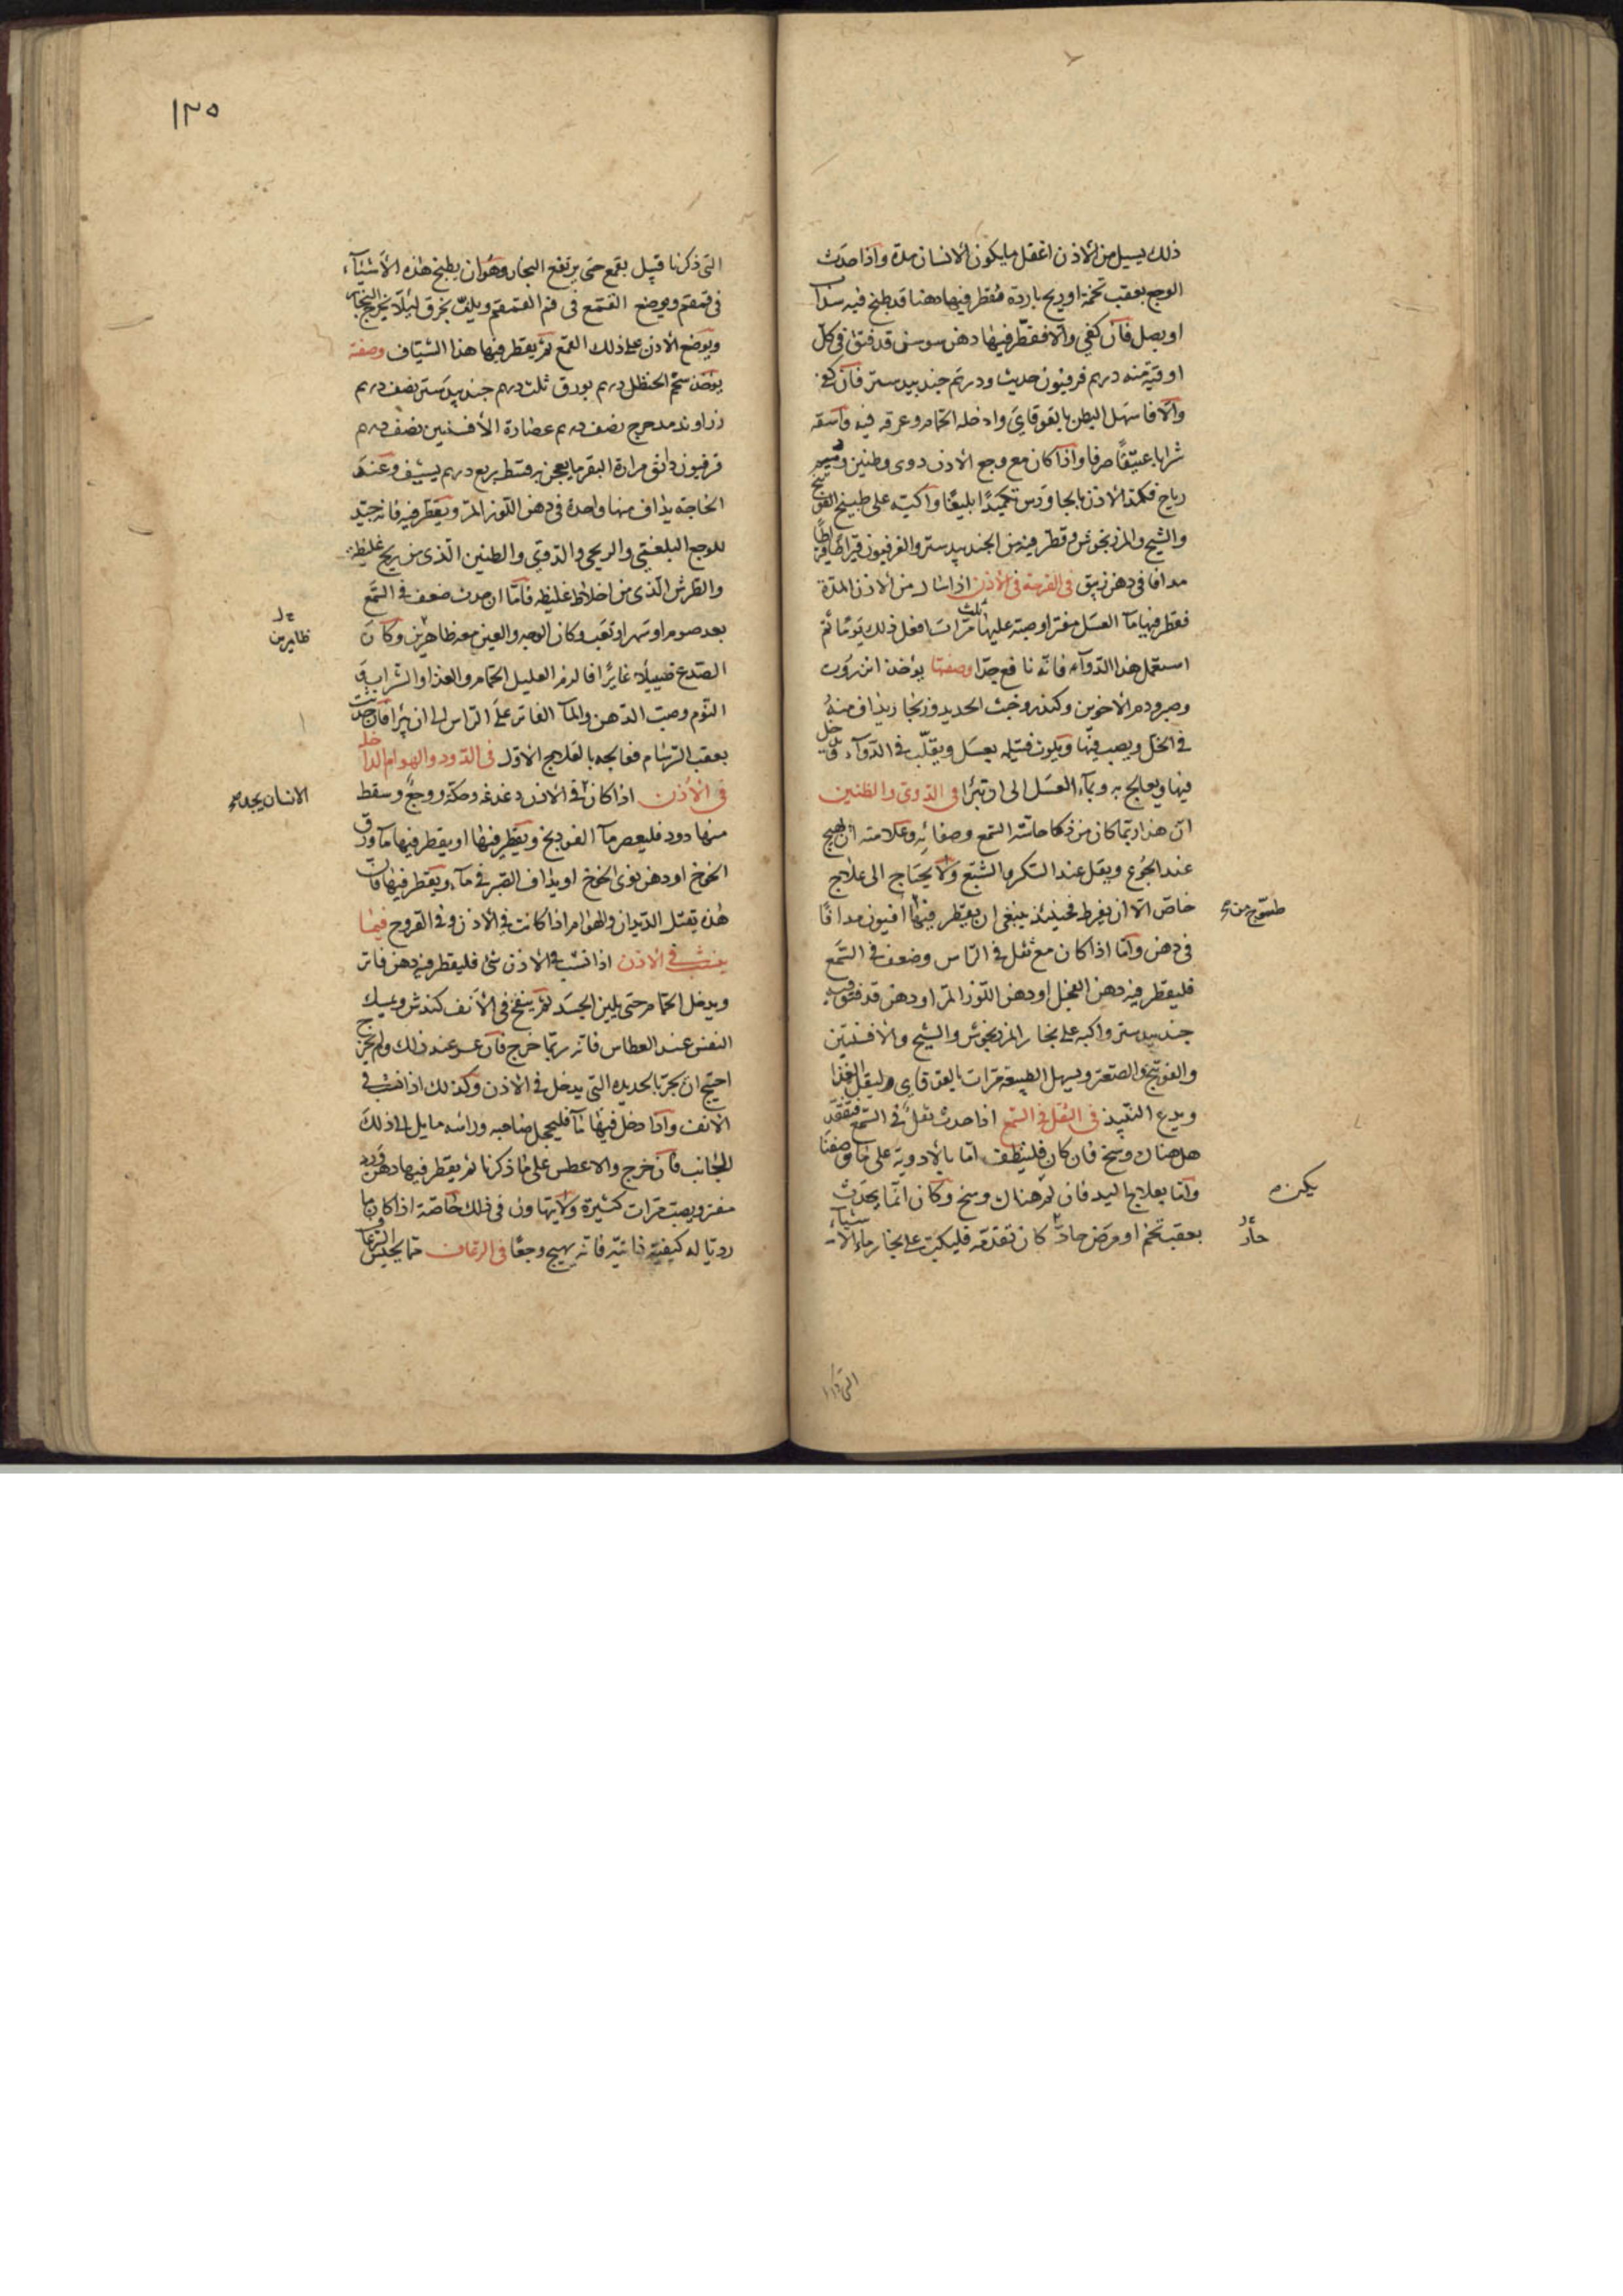 ذلك يسيل من الاذن اغفل مايكون الانسان مدة واذا حدث
الوجع بعقب تخمة او ريح باردة فقطر فيها دهنا قد طبخ فيه سذاب
او بصل فان كفى والا فقطر فيها دهن سوسن قد فتق في كل
اوقية منه درهم فرفيون حديث ودرهم جندبيدستر فان كفى
والا فاسهل البطن بالقوقاي وادخله الحمام وعرقه فيه واسقه
شرابا عتيقا صرفا واذا كان مع وجع الاذن دوى وطنين
رياح فكمد الاذن بالجاورس تكميدا بليغا واكبه على طبيخ الفوتنج
والشيح والمرزنجوش وقطر فيه من الجندبيدستر والفرفيون قيراطا قيراطا
مدافا في دهن زيبق في القرحة في الاذن اذا سال من الاذن المدة
فقطر فيها ماء العسل مفترا وصبه عليها ثلث مرات افعل ذلك يوما ثم
استعمل هذا الدواء فانه نافع جدا وصفتها يؤخذ انزروت
وصبر ودم الاخوين وكندر وخبث الحديد وزنجار يذاف منه
في الخل ويصب فيها ويلوث فتيلة بعسل ويقلب في الدواء وتدخل
فيها ويعالج به وبماء العسل الى ان تبرأ في الدوى والطنين
ان هذا ربما كان من ذكا حاسة السمع وصفائه وعلامته ان يهيج
عند الجوع ويقل عند السكر والشبع ولا يحتاج الى علاج
خاص الا ان يفرط فحينئذ ينبغي ان يقطر فيها افيون مدافا
طسوج من
في دهن واما اذا كان مع ثقل في الراس وضعف في السمع
فليقطر فيه دهن الفجل او دهن اللوز المر او دهن قد فتق فيه
جندبيدستر واكبه على بخار المرزنجوش والشيح والافسنتين
والفوتنج والصعتر ويسهل الطبيعة مرات بالقوقاي وليقل الغذا
ويدع النبيذ في الثقل في السمع اذا حدث ثقل في السمع فتفقد
هل هناك وسخ فان كان فلينظف اما بالادوية على ما وصفنا
واما بعلاج اليد فان لم هناك وسخ وكان انما يحدث
يكن
بعقب تخم او مرض حاد كان تقدمه فليكب على بخار ماء الاشياء
حاد
١٢٥
التي ذكرنا قبيل بقمع حتى يرتفع البخار وهو ان يطبخ هذه الاشياء
في قمقم ويوضع القمع في فم القمقم ويلف بخرق ليلا يخرج البخار
ويوضع الاذن على ذلك القمع ثم يقطر فيها هذا الشياف وصفته
يؤخذ شحم الحنظل درهم بورق ثلث درهم جندبيدستر نصف درهم
زراوند مدحرج نصف درهم عصارة الافسنتين نصف درهم
فرفيون دانق مرارة البقر ما يعجن به قسط ربع درهم يشيف وعند
الحاجة يذاف منها واحدة في دهن اللوز المر ويقطر فيه فانه جيد
للوجع البلغمي والريحي والدوي والطنين الذي من ريح غليظة
والطرش الذي من اخلاط غليظة فاما ان حدث ضعف في السمع
بعد صوم او سهر او تعب وكان الوجه والعين معه ظاهرين وكان
ظايرين
الصدغ ضييلا غايرا فالزم العليل الحمام والغذا والشراب و
النوم وصب الدهن والماء الفاتر على الراس الى ان يبرأ فان حدثت
بعقب البرسام فعالجه بالعلاج الاول في الدود والهوام الداخلة
في الاذن اذا كان في الاذن دغدغة وحكة ووجع وسقط
الانسان يجد
منها دود فليعصر ماء الفودنج ويقطر فيها او يقطر فيها ماء ورق
الخوخ او دهن نوى الخوخ او يذاف الصبر في ماء ويقطر فيها فان
هذه يقتل الديدان والهوام اذا كانت في الاذن وفي القروح فيما
ينشب في الاذن اذا نشب في الاذن شئ فليقطر فيه دهن فاتر
ويدخل الحمام حتى يلين الجسد ثم ينفخ في الانف كندش ويمسك
النفس عند العطاس فانه ربما خرج فان عسر عند ذلك ولم يخرج
احتيج ان يجر بالحديدة التي يدخل في الاذن وكذلك اذا نشب في
الانف واذا دخل فيها ماء فليحجل صاحبه وراسه مايل الى ذلك
الجانب فان خرج والا عطس على ما ذكرنا ثم يقطر فيها دهن ورد
مفتر ويصب مرات كثيرة ولا يتهاون في ذلك خاصة اذا كان ما
رديا له كيفية ذاتية فانه يهيج وجعا في الرعاف مما يحبس الرعاف